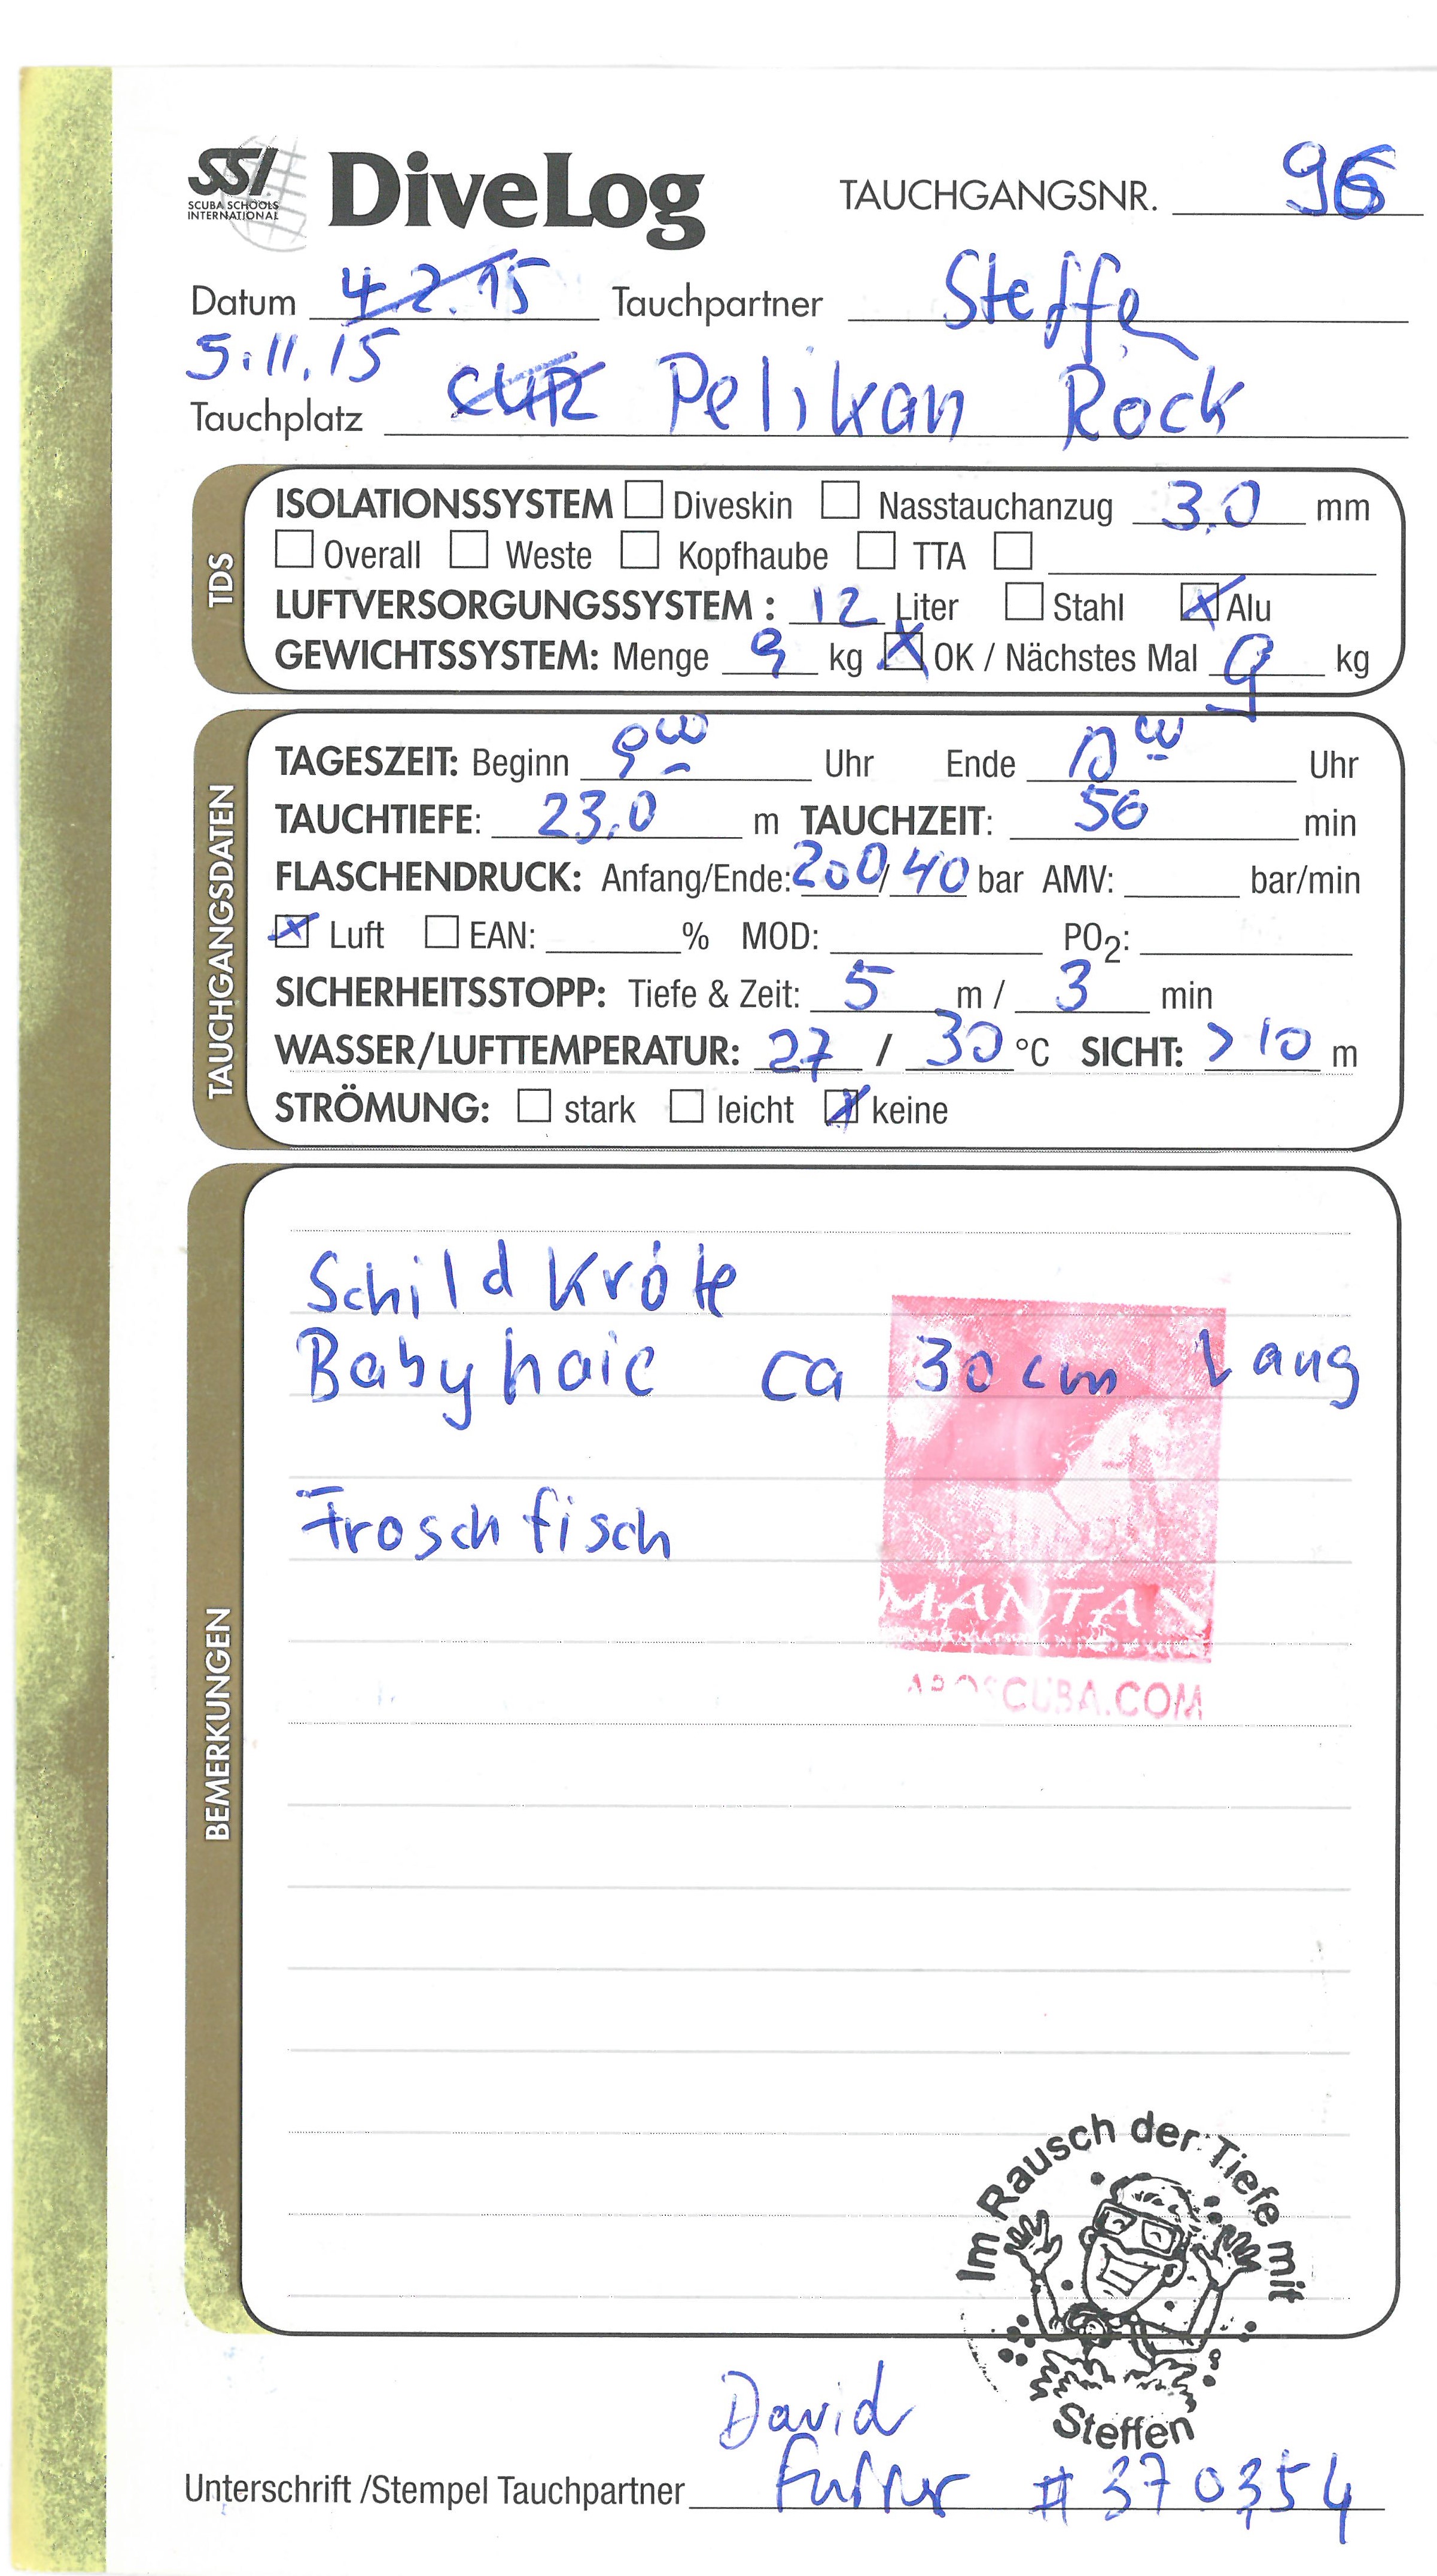 SSI DiveLog TAUCHGANGSNR. 96
SCUBA SCHOOLS
INTERNATIONAL
Datum 4.2.15 Tauchpartner Steffe
5.11.15
Tauchplatz Pelikan Rock
TDS
ISOLATIONSSYSTEM Diveskin Nasstauchanzug 3,0 mm
Overall Weste Kopfhaube TTA
LUFTVERSORGUNGSSYSTEM : 12 Liter Stahl X Alu
GEWICHTSSYSTEM: Menge 9 kg X OK / Nächstes Mal 9 kg
TAUCHGANGSDATEN
TAGESZEIT: Beginn 9 00 Uhr Ende 10 00 Uhr
TAUCHTIEFE: 23,0 m TAUCHZEIT: 56 min
FLASCHENDRUCK: Anfang/Ende: 200 / 40 bar AMV: bar/min
X Luft EAN: % MOD: PO2:
SICHERHEITSSTOPP: Tiefe & Zeit: 5 m / 3 min
WASSER/LUFTTEMPERATUR: 27 / 30 °C SICHT: > 10 m
STRÖMUNG: stark leicht X keine
BEMERKUNGEN
Schildkröte
Babyhaie ca 30 cm Lang
Froschfisch
MANTA
SCUBA.COM
Im Rausch der Tiefe mit
Steffen
David
Unterschrift /Stempel Tauchpartner # 370354